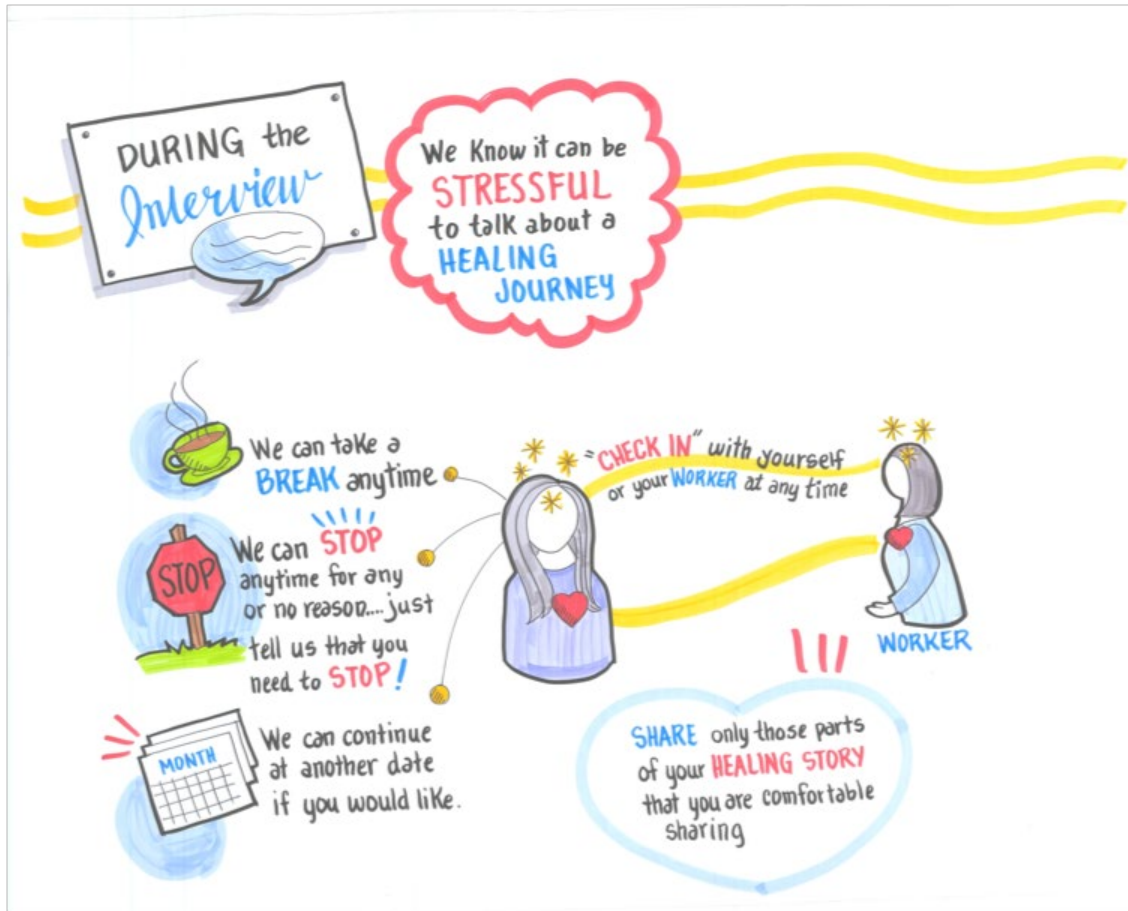 DURING the
Interview
We Know it can be
STRESSFUL
to talk about a
HEALING
JOURNEY
We can take a
BREAK anytime
STOP
We can STOP
anytime for any
or no reason.... just
tell us that you
need to STOP!
MONTH
We can continue
at another date
if you would like.
"CHECK IN" with yourself
or your WORKER at any time
WORKER
SHARE only those parts
of your HEALING STORY
that you are comfortable
sharing